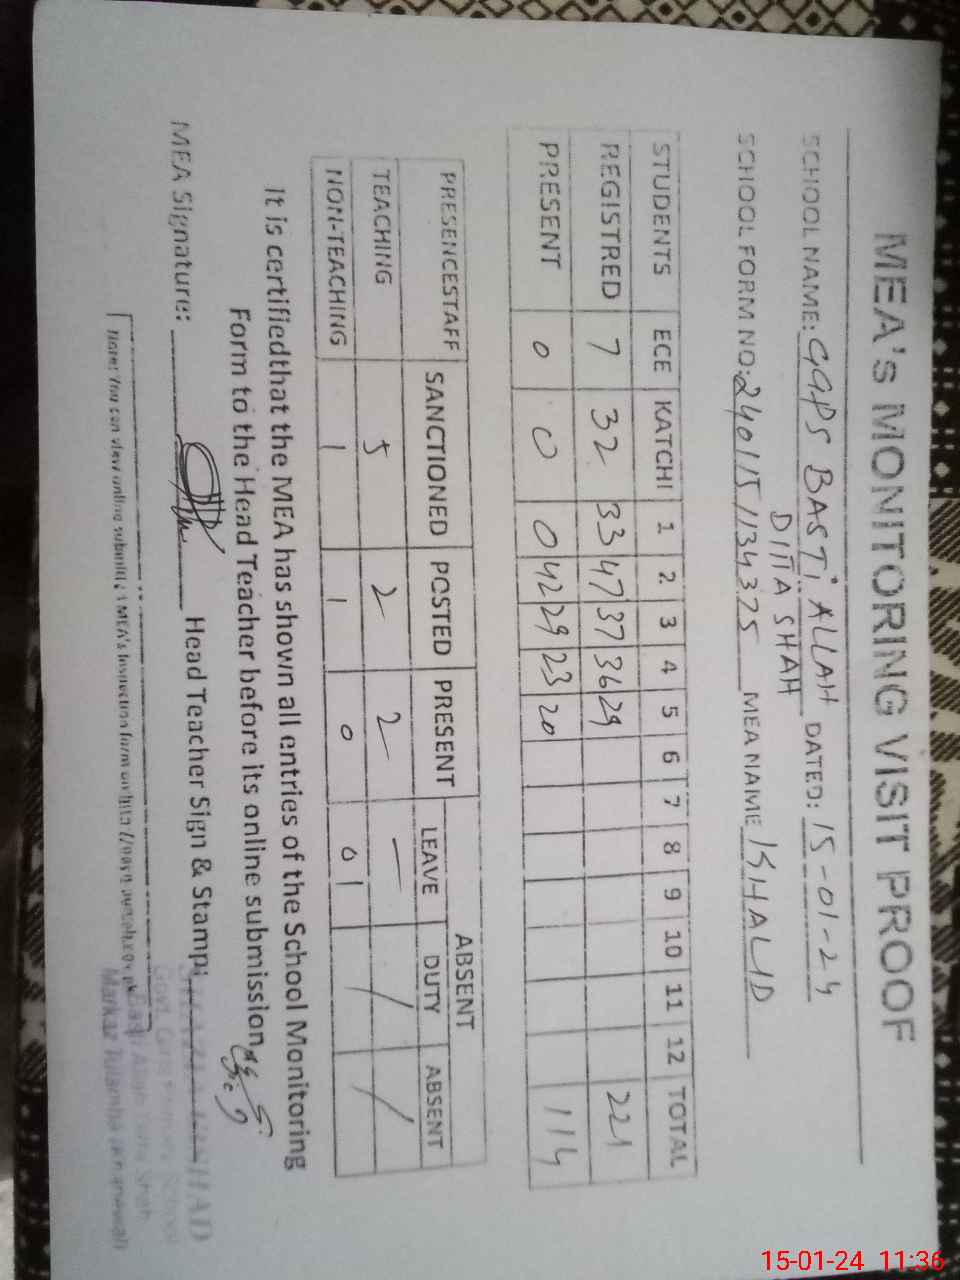 MEA's MONITORING VISIT PROOF
SCHOOL NAME: GGPS BASTI ALLAH DITTA SHAH DATED: 15-01-24
SCHOOL FORM NO: 2401151134375 MEA NAME KHALID
STUDENTS ECE KATCHI 1 2 3 4 5 6 7 8 9 10 11 12 TOTAL
REGISTRED 7 32 33 47 37 36 29 221
PRESENT 0 0 0 42 29 23 20 114
PRESENCESTAFF SANCTIONED POSTED PRESENT ABSENT
LEAVE DUTY ABSENT
TEACHING 5 2 2 — / /
NON-TEACHING 1 1 0 01
It is certifiedthat the MEA has shown all entries of the School Monitoring
Form to the Head Teacher before its online submission
MEA Signature: Head Teacher Sign & Stamp:
Note: You can view online submitted MEA's Inspection form on
Govt. Girls School
Basti Allah Ditta Shah
Markaz Tulamba
15-01-24 11:36